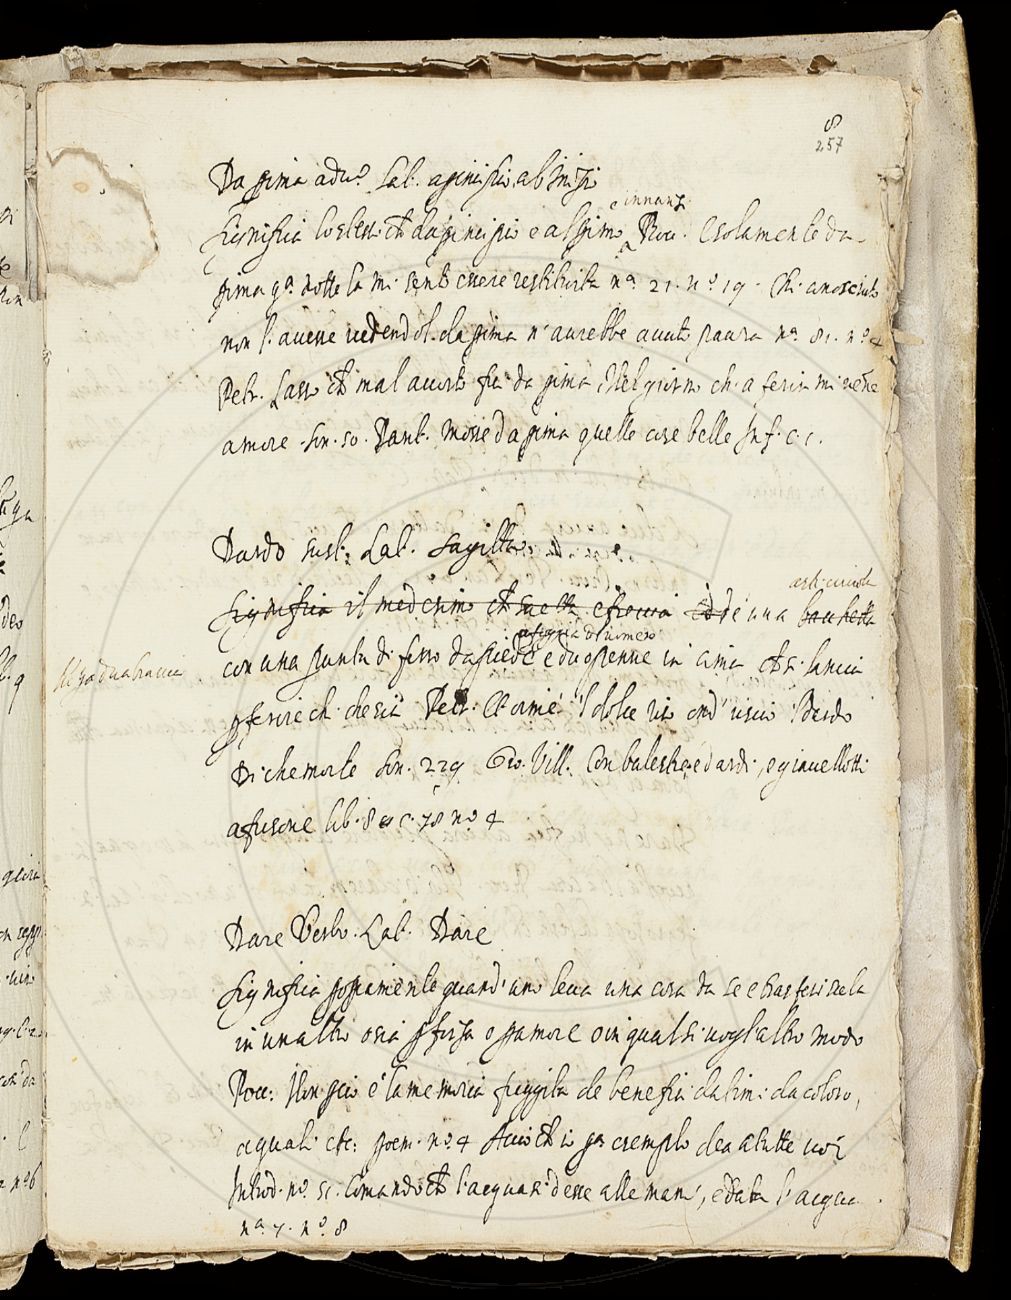 8
257
Da prima adu.o Lat. a principio, ab initio
innanzi
Significa lo stesso ch da principio e al primo Bocc. E solamente da
prima q.a notte la mi. sento essere restituita n.a 21. n.o 19. Chi conosciuto
non l'avesse vedendol. da prima n'aurebbe avuto paura n.a 81. n.o 4
Petr. Lasso ch mal accorto fui da prima Nel giorno ch'a ferir mi venne
amore. Son. 50. Dant. Mosse da prima quelle cose belle Inf. c. 1.
Dardo sust: Lat. Sagitta:
asticciuola
Significa il medesimo ch saetta e freccia è una bacchetta
a foggia di
con una punta di ferro da piede e due penne in cima ch si lancia
p ferire chi che sia Petr. Oimè il dolce riso ond'uscio 'l dardo
Di che morte Son. 229 Gio. Vill. Con balestre, e dardi, e giavellotti
a fusone lib. 8 c. 78 no 4
Dare Verbo. Lat. Dare
Significa propriamente quand'uno leva una cosa da se e trasferiscela
in un altro o sia p forza o p amore o in qual si vogl'altro modo
Bocc: Non però è la memoria fuggita de benefici datimi da coloro,
a quali etc: proem. no. 4 Acciò ch io p.a esemplo dea a tutte voi
Introd. no. 51. Comandò ch l'acqua si desse alle mani, e data l'acqua
n.a 7. n.o 8